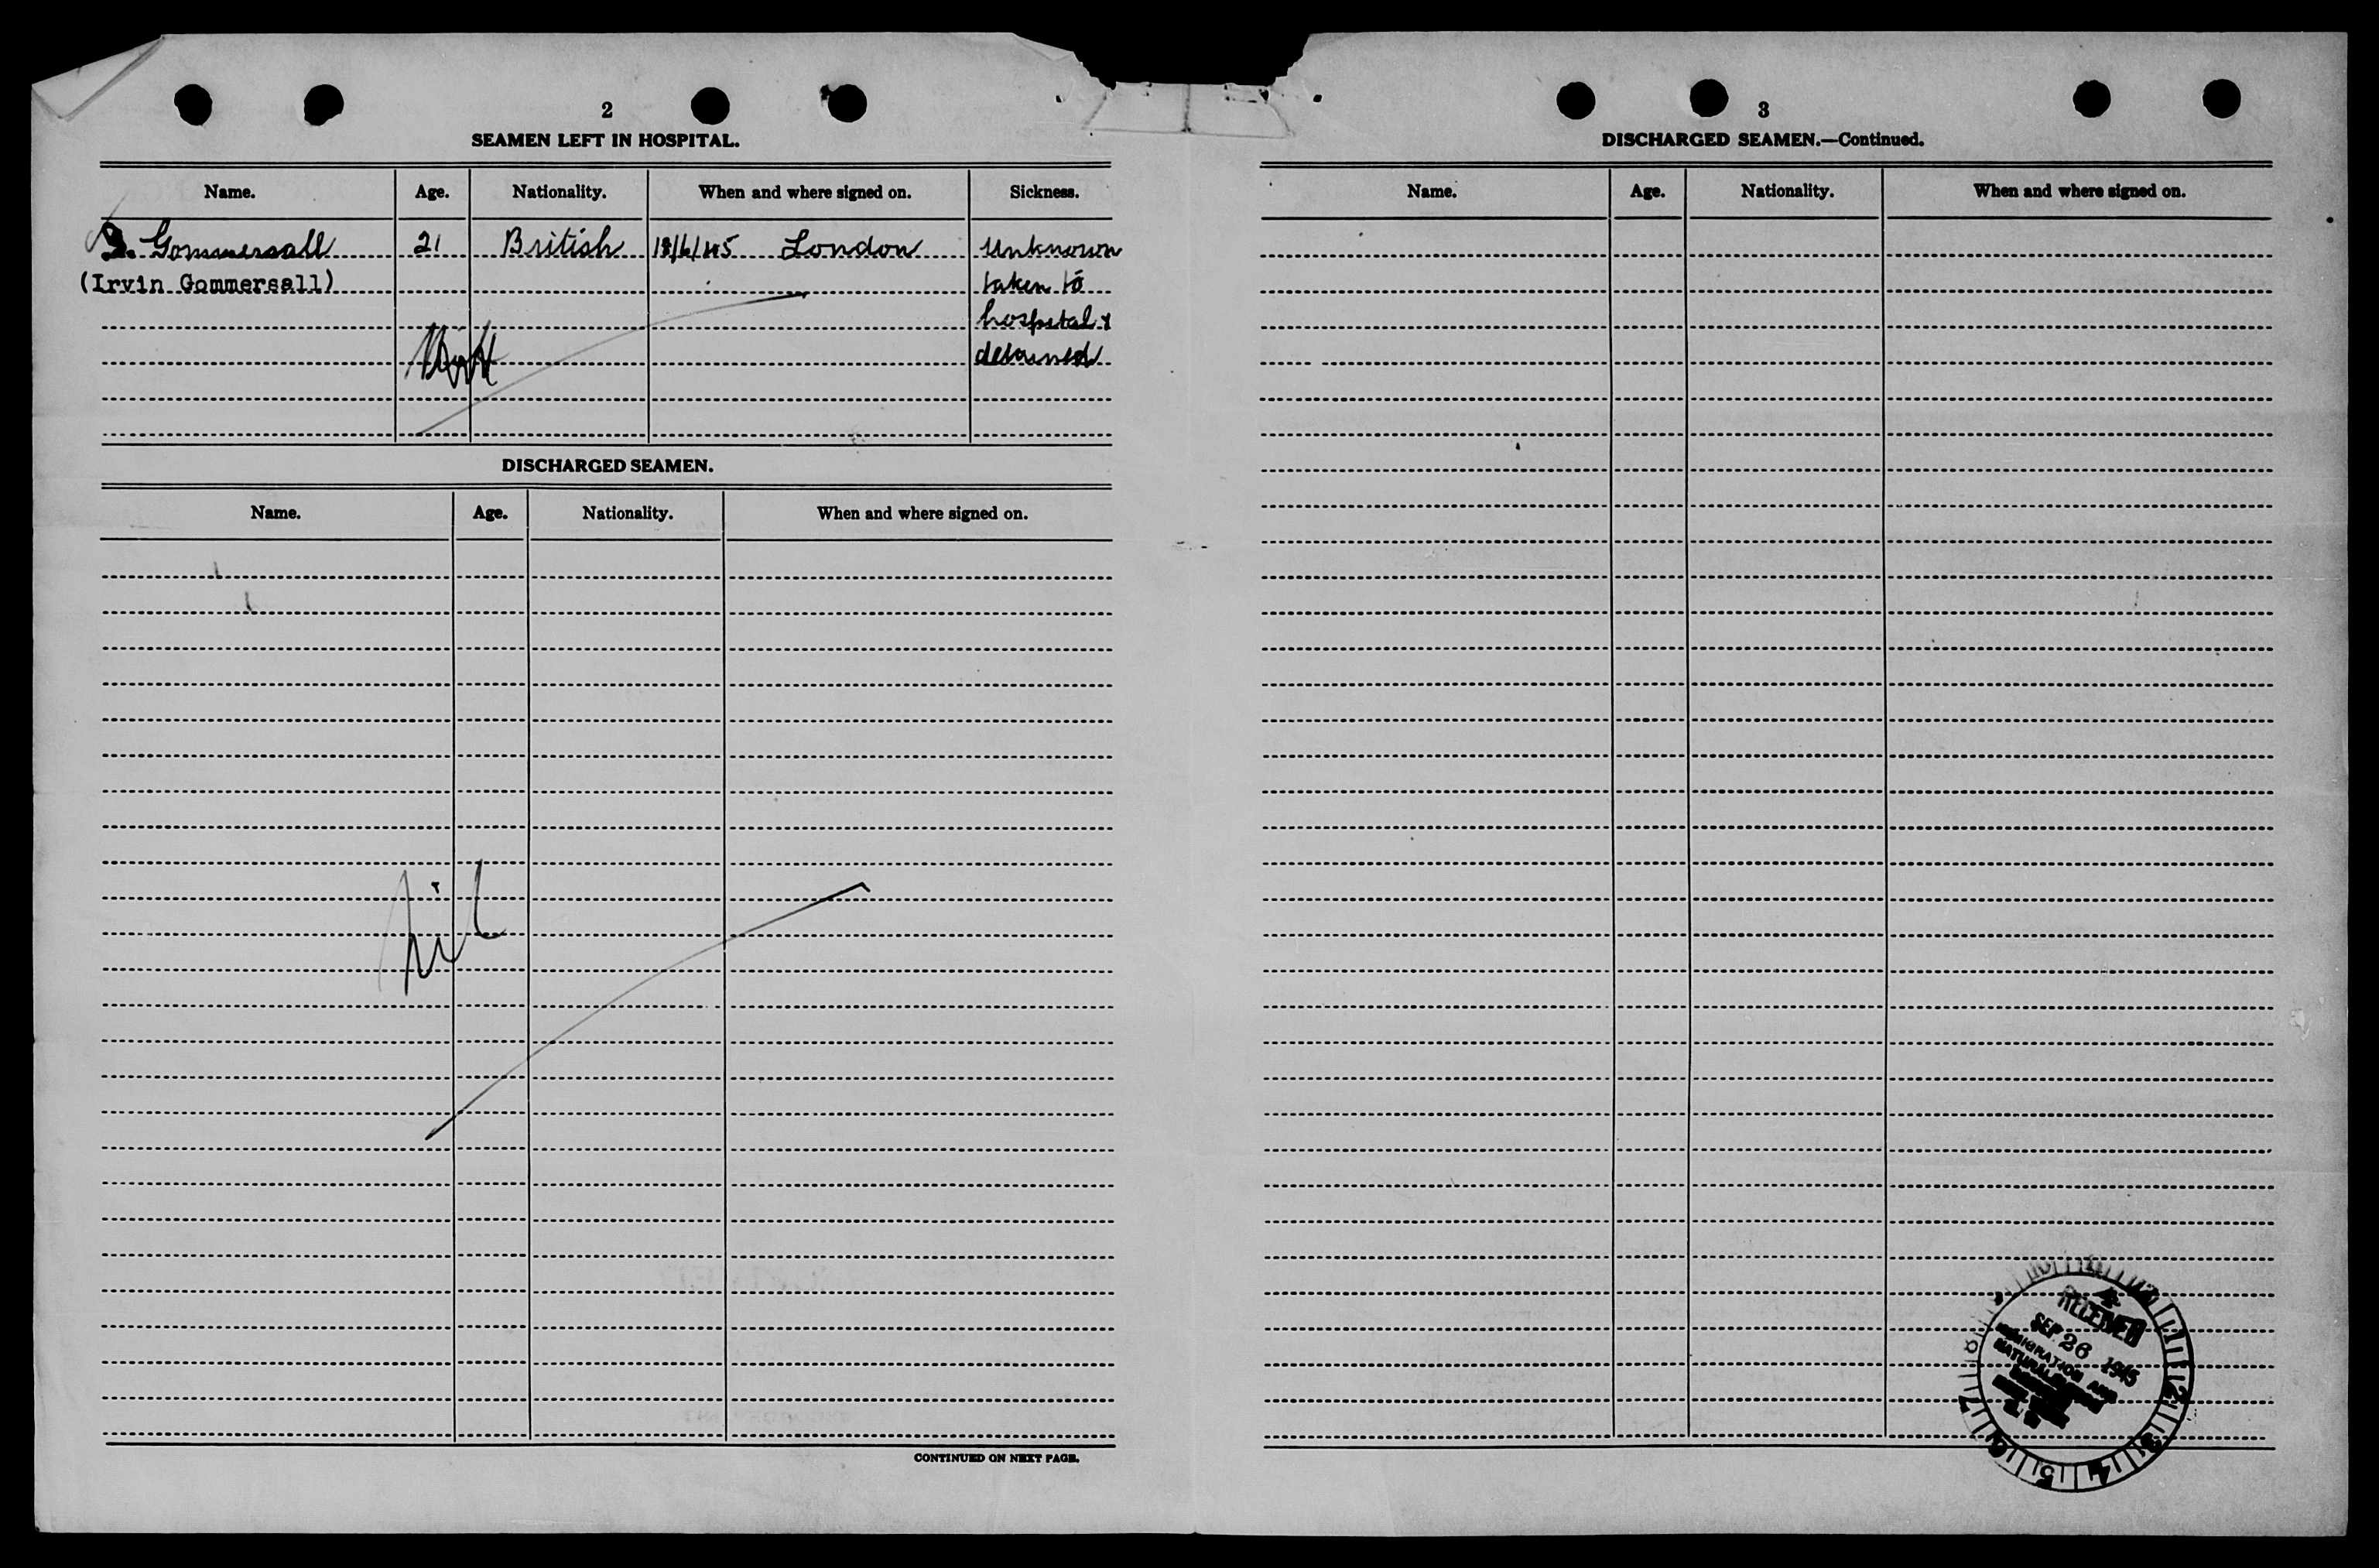 2
SEAMEN LEFT IN HOSPITAL.
Name. Age. Nationality. When and where signed on. Sickness.
Gommersall 21 British 18/6/45 London Unknown
(Irvin Gommersall) taken to
hospital &
detained
DISCHARGED SEAMEN.
Name. Age. Nationality. When and where signed on.
nil
CONTINUED ON NEXT PAGE.
3
DISCHARGED SEAMEN.—Continued.
Name. Age. Nationality. When and where signed on.
RECEIVED
SEP 26 1945
IMMIGRATION AND